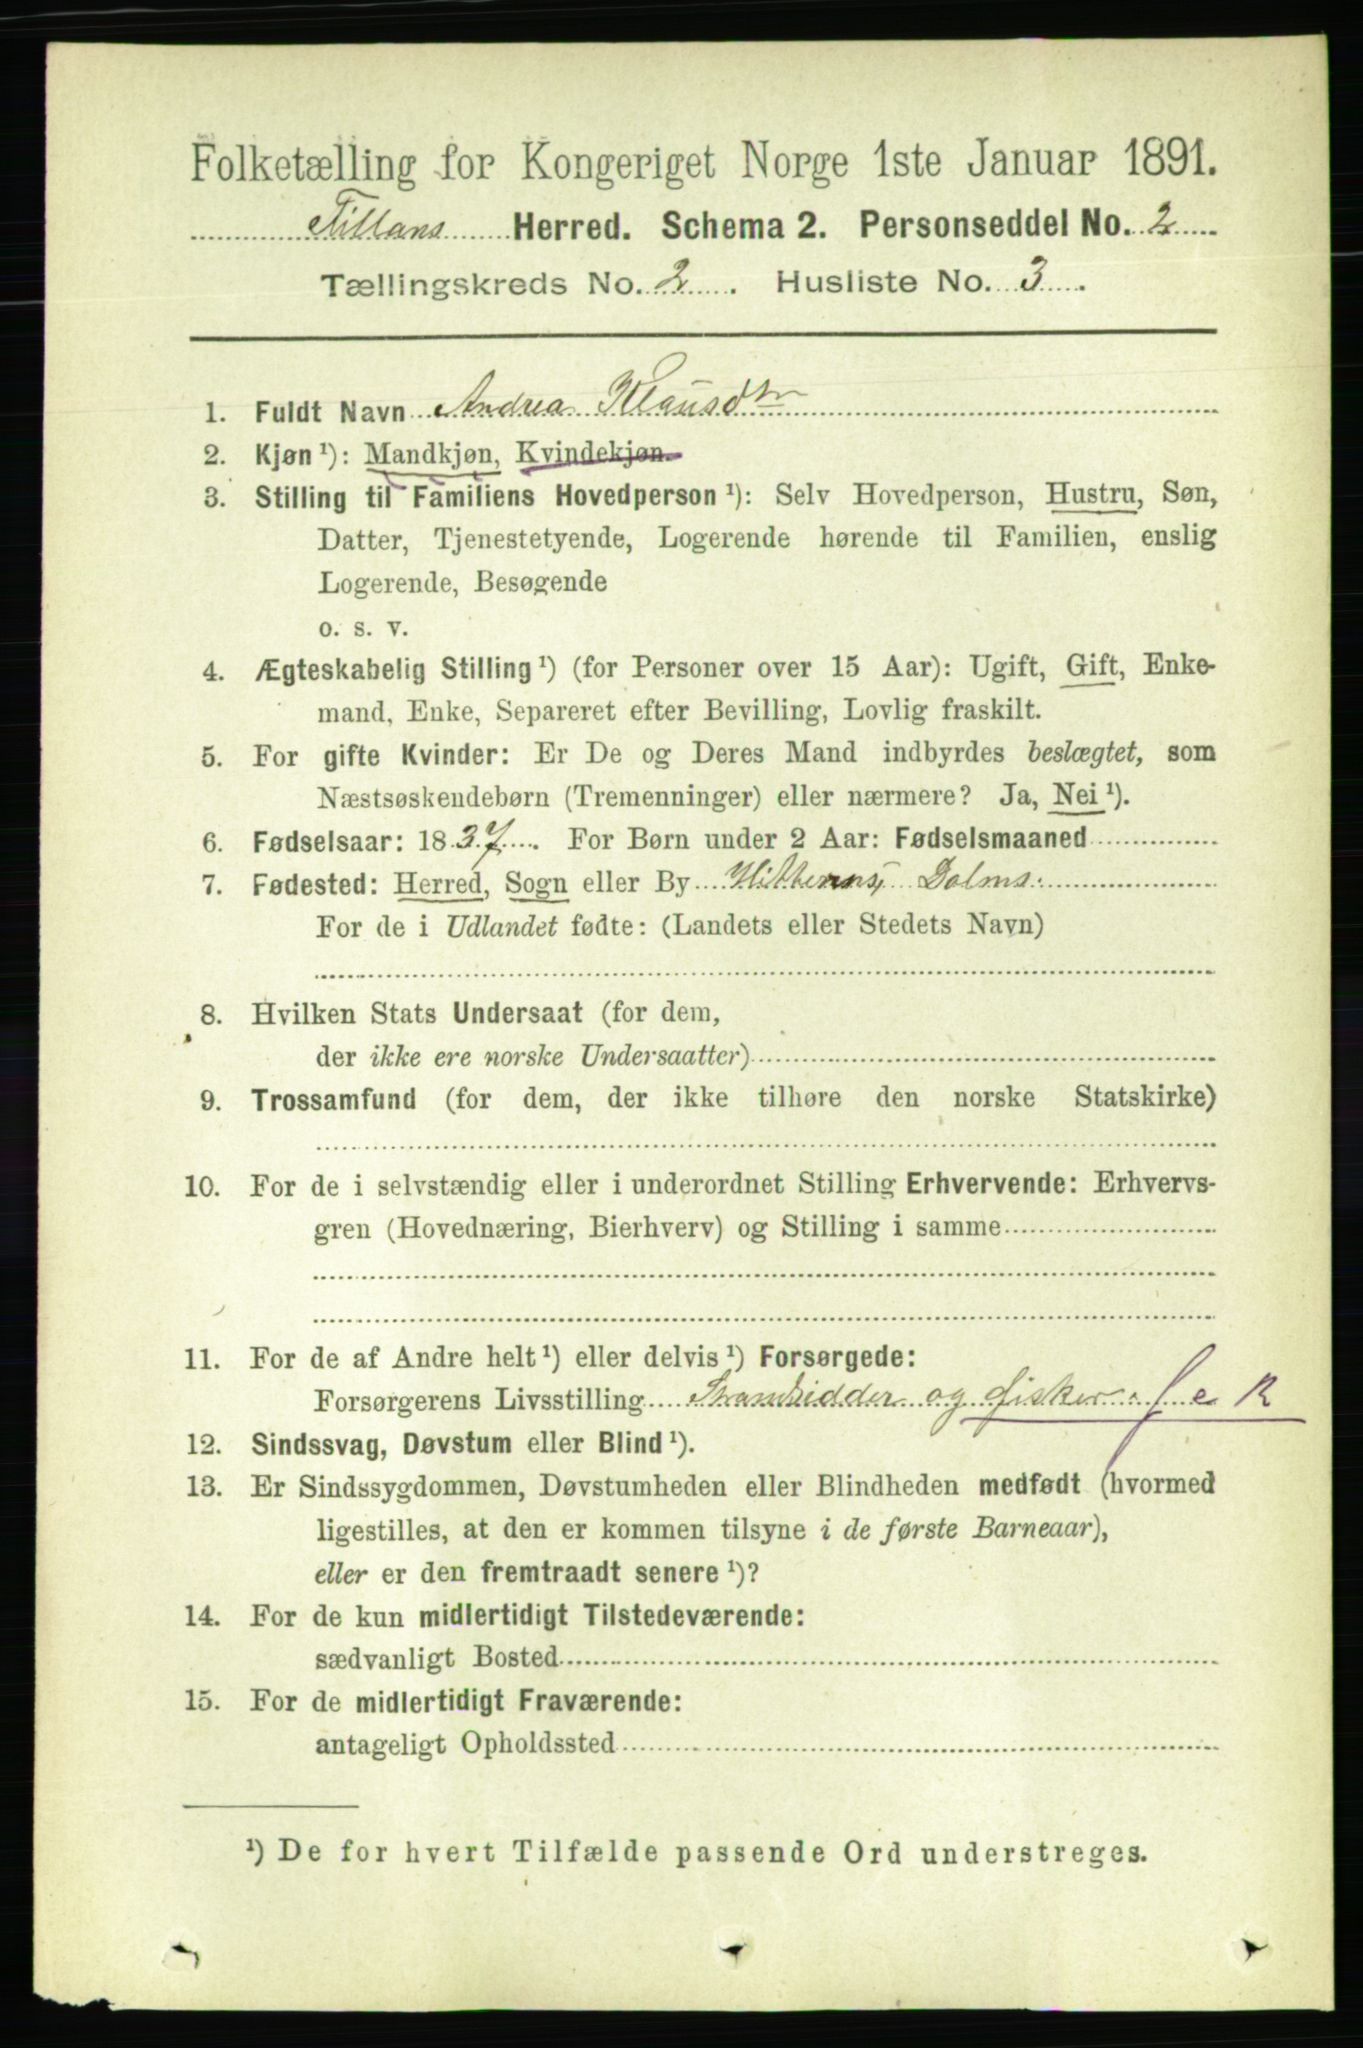 Folketælling for Kongeriget Norge 1ste Januar 1891.
Fillans Herred. Schema 2. Personseddel No. 2
Tællingskreds No. 2. Husliste No. 3.
1. Fuldt Navn Andrea Klausdtr
2. Kjøn ¹): Mandkjøn, Kvindekjøn.
3. Stilling til Familiens Hovedperson ¹): Selv Hovedperson, Hustru, Søn,
Datter, Tjenestetyende, Logerende hørende til Familien, enslig
Logerende, Besøgende
o. s. v.
4. Ægteskabelig Stilling ¹) (for Personer over 15 Aar): Ugift, Gift, Enke-
mand, Enke, Separeret efter Bevilling, Lovlig fraskilt.
5. For gifte Kvinder: Er De og Deres Mand indbyrdes beslægtet, som
Næstsøskendebørn (Tremenninger) eller nærmere? Ja, Nei ¹).
6. Fødselsaar: 1837. For Børn under 2 Aar: Fødselsmaaned
7. Fødested: Herred, Sogn eller By Hitterens, Dolms.
For de i Udlandet fødte: (Landets eller Stedets Navn)
8. Hvilken Stats Undersaat (for dem,
der ikke ere norske Undersaatter)
9. Trossamfund (for dem, der ikke tilhøre den norske Statskirke)
10. For de i selvstændig eller i underordnet Stilling Erhvervende: Erhvervs-
gren (Hovednæring, Bierhverv) og Stilling i samme
11. For de af Andre helt ¹) eller delvis ¹) Forsørgede:
Forsørgerens Livsstilling Strandsidder og Fisker. f e R
12. Sindssvag, Døvstum eller Blind ¹).
13. Er Sindssygdommen, Døvstumheden eller Blindheden medfødt (hvormed
ligestilles, at den er kommen tilsyne i de første Barneaar),
eller er den fremtraadt senere ¹)?
14. For de kun midlertidigt Tilstedeværende:
sædvanligt Bosted
15. For de midlertidigt Fraværende:
antageligt Opholdssted
¹) De for hvert Tilfælde passende Ord understreges.